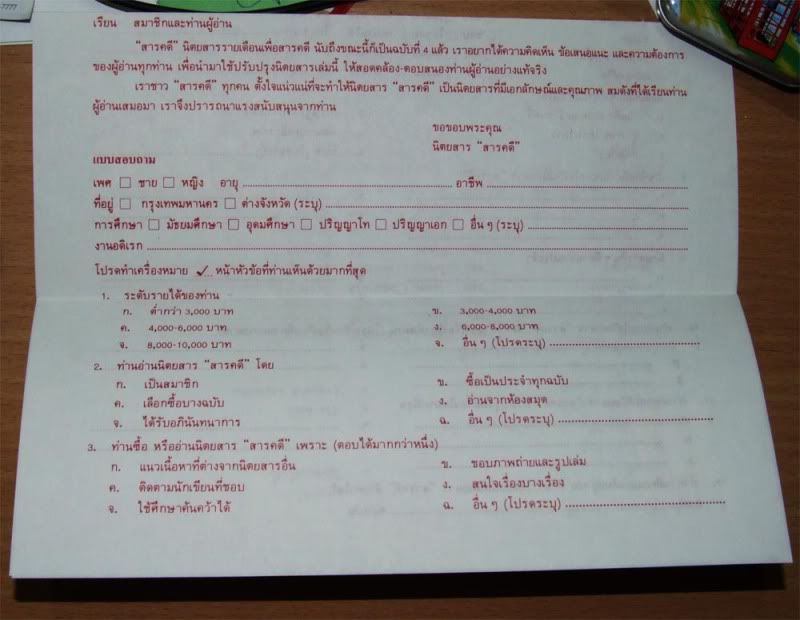 -7777
เรียน สมาชิกและท่านผู้อ่าน
"สารคดี" นิตยสารรายเดือนเพื่อสารคดี นับถึงขณะนี้ก็เป็นฉบับที่ 4 แล้ว เราอยากได้ความคิดเห็น ข้อเสนอแนะ และความต้องการ
ของผู้อ่านทุกท่าน เพื่อนำมาใช้ปรับปรุงนิตยสารเล่มนี้ ให้สอดคล้อง-ตอบสนองท่านผู้อ่านอย่างแท้จริง
เราชาว "สารคดี" ทุกคน ตั้งใจแน่วแน่ที่จะทำให้นิตยสาร "สารคดี" เป็นนิตยสารที่มีเอกลักษณ์และคุณภาพ สมดังที่ได้เรียนท่าน
ผู้อ่านเสมอมา เราจึงปรารถนาแรงสนับสนุนจากท่าน
ขอขอบพระคุณ
นิตยสาร "สารคดี"
แบบสอบถาม
เพศ ☐ ชาย ☐ หญิง อายุ .......................... อาชีพ ..........................
ที่อยู่ ☐ กรุงเทพมหานคร ☐ ต่างจังหวัด (ระบุ) ..........................
การศึกษา ☐ มัธยมศึกษา ☐ อุดมศึกษา ☐ ปริญญาโท ☐ ปริญญาเอก ☐ อื่น ๆ (ระบุ) ..........................
งานอดิเรก ..........................
โปรดทำเครื่องหมาย ✓ หน้าหัวข้อที่ท่านเห็นด้วยมากที่สุด
1. ระดับรายได้ของท่าน
ก. ต่ำกว่า 3,000 บาท ข. 3,000-4,000 บาท
ค. 4,000-6,000 บาท ง. 6,000-8,000 บาท
จ. 8,000-10,000 บาท ฉ. อื่น ๆ (โปรดระบุ) ..........................
2. ท่านอ่านนิตยสาร "สารคดี" โดย
ก. เป็นสมาชิก ข. ซื้อเป็นประจำทุกฉบับ
ค. เลือกซื้อบางฉบับ ง. อ่านจากห้องสมุด
จ. ได้รับอภินันทนาการ ฉ. อื่น ๆ (โปรดระบุ) ..........................
3. ท่านซื้อ หรืออ่านนิตยสาร "สารคดี" เพราะ (ตอบได้มากกว่าหนึ่ง)
ก. แนวเนื้อหาที่ต่างจากนิตยสารอื่น ข. ชอบภาพถ่ายและรูปเล่ม
ค. ติดตามนักเขียนที่ชอบ ง. สนใจเรื่องบางเรื่อง
จ. ใช้ศึกษาค้นคว้าได้ ฉ. อื่น ๆ (โปรดระบุ) ..........................